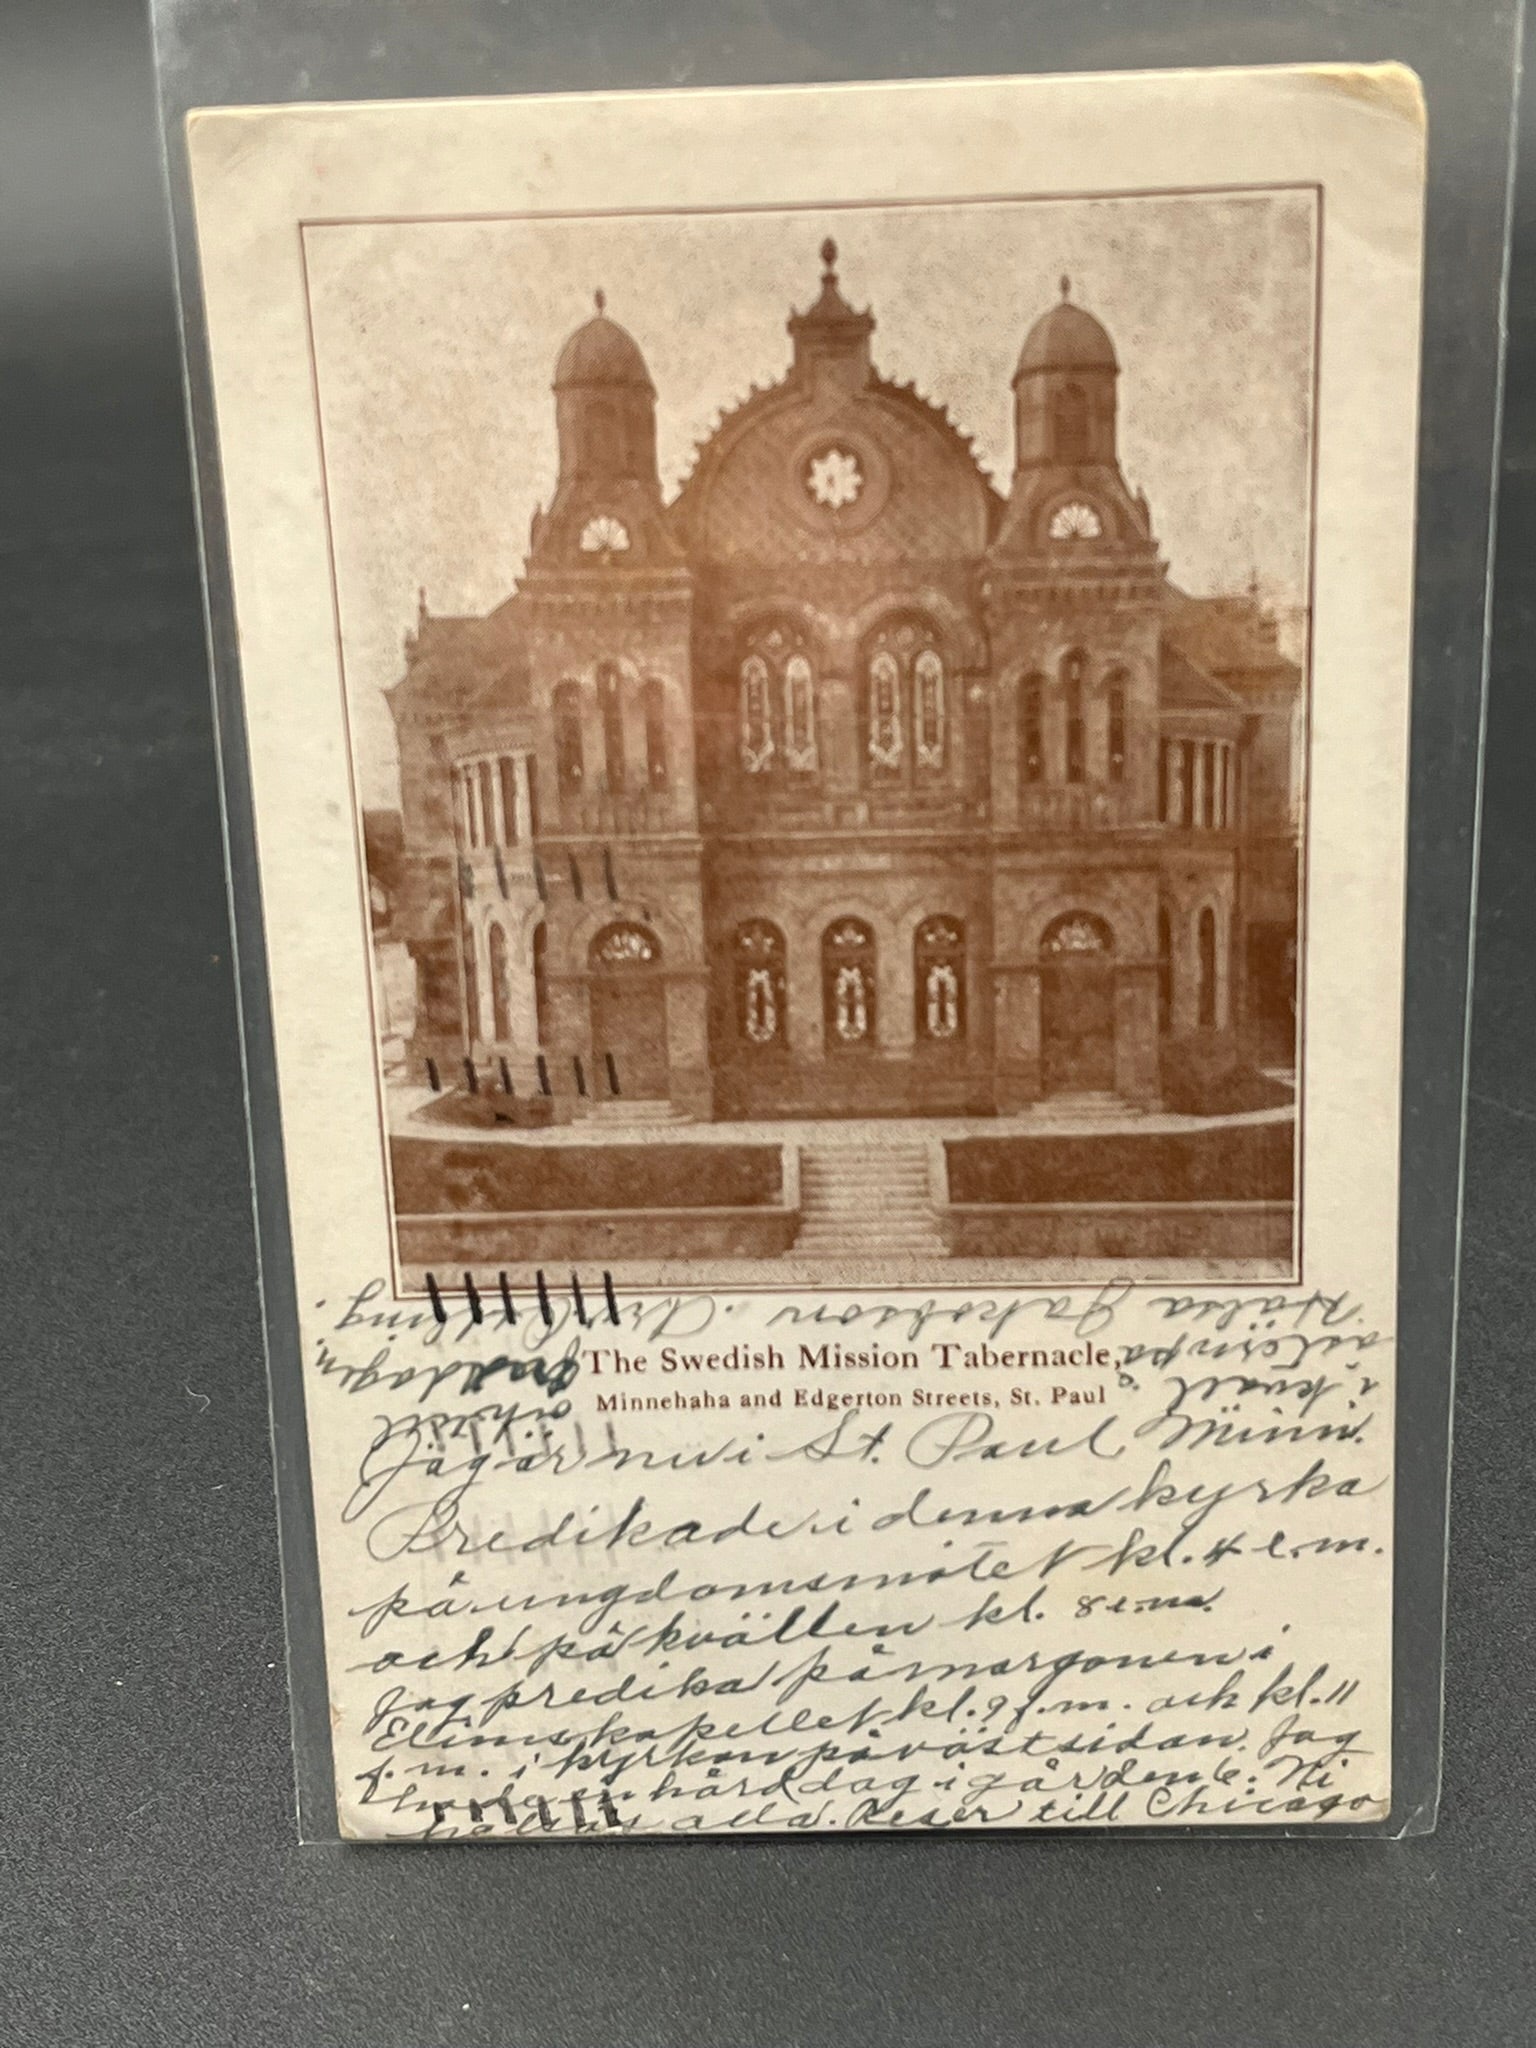 The Swedish Mission Tabernacle,
Minnehaha and Edgerton Streets, St. Paul
Jag är nu i St. Paul, Minn.
Predikade i denna kyrka
på ungdomsmötet kl. 4 e.m.
och på kvällen kl. 8 e.m.
Jag predika på morgonen i
Elimskapellet kl. 9 f.m. och kl. 11
f.m. i kyrkan på västsidan. Jag
hade en hård dag i går den 6. Ni
hälsas alla. Reser till Chicago
i kväll och
åter på fredagen.
Hälsa Jakobson.